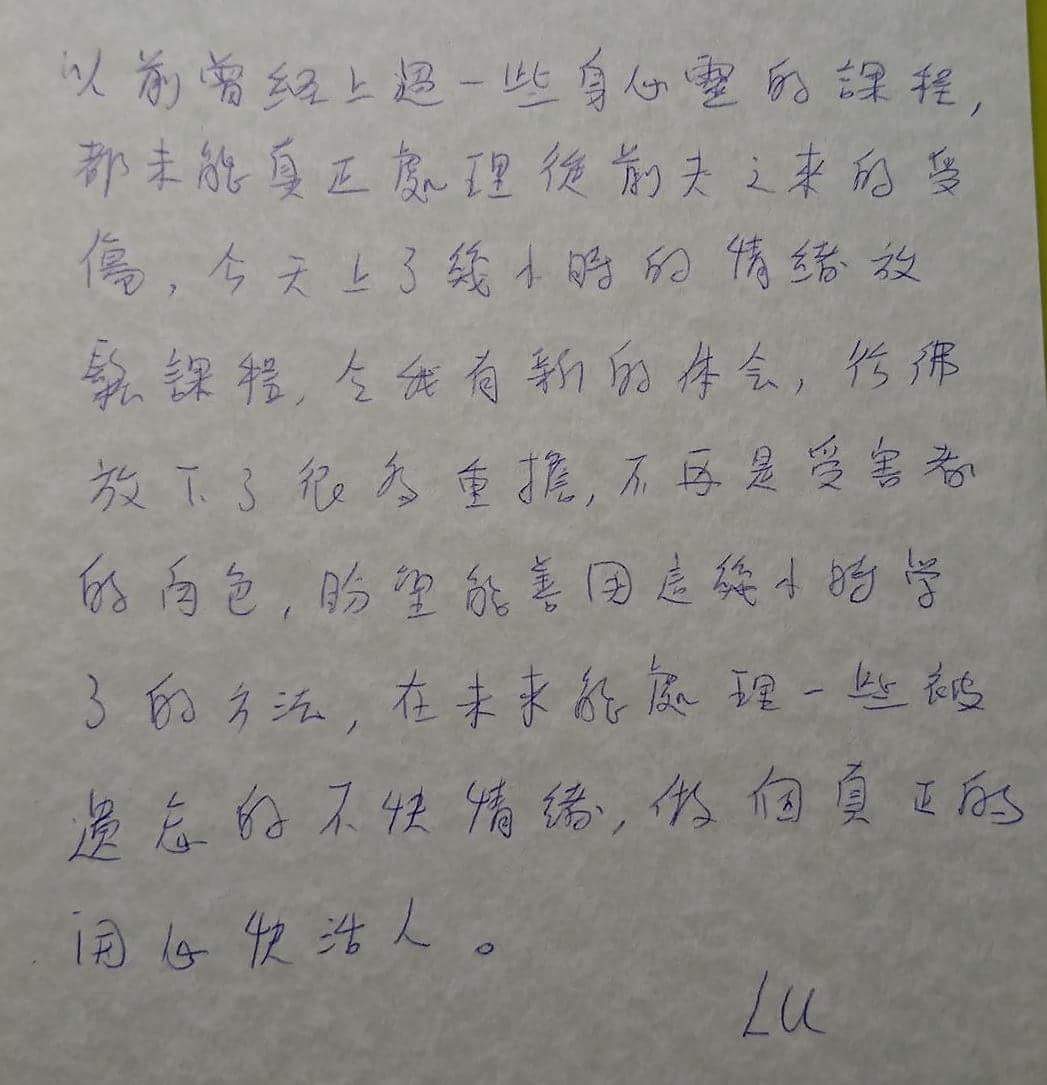 以前曾經上過一些身心靈的課程,
都未能真正處理從前夫之來的受
傷, 今天上了幾小時的情緒放
鬆課程, 令我有新的体会, 彷彿
放下了很多重擔, 不再是受害者
的角色, 盼望能善用這幾小時学
了的方法, 在未來能處理一些被
遺忘的不快情緒, 做個真正的
開心快活人。
LU